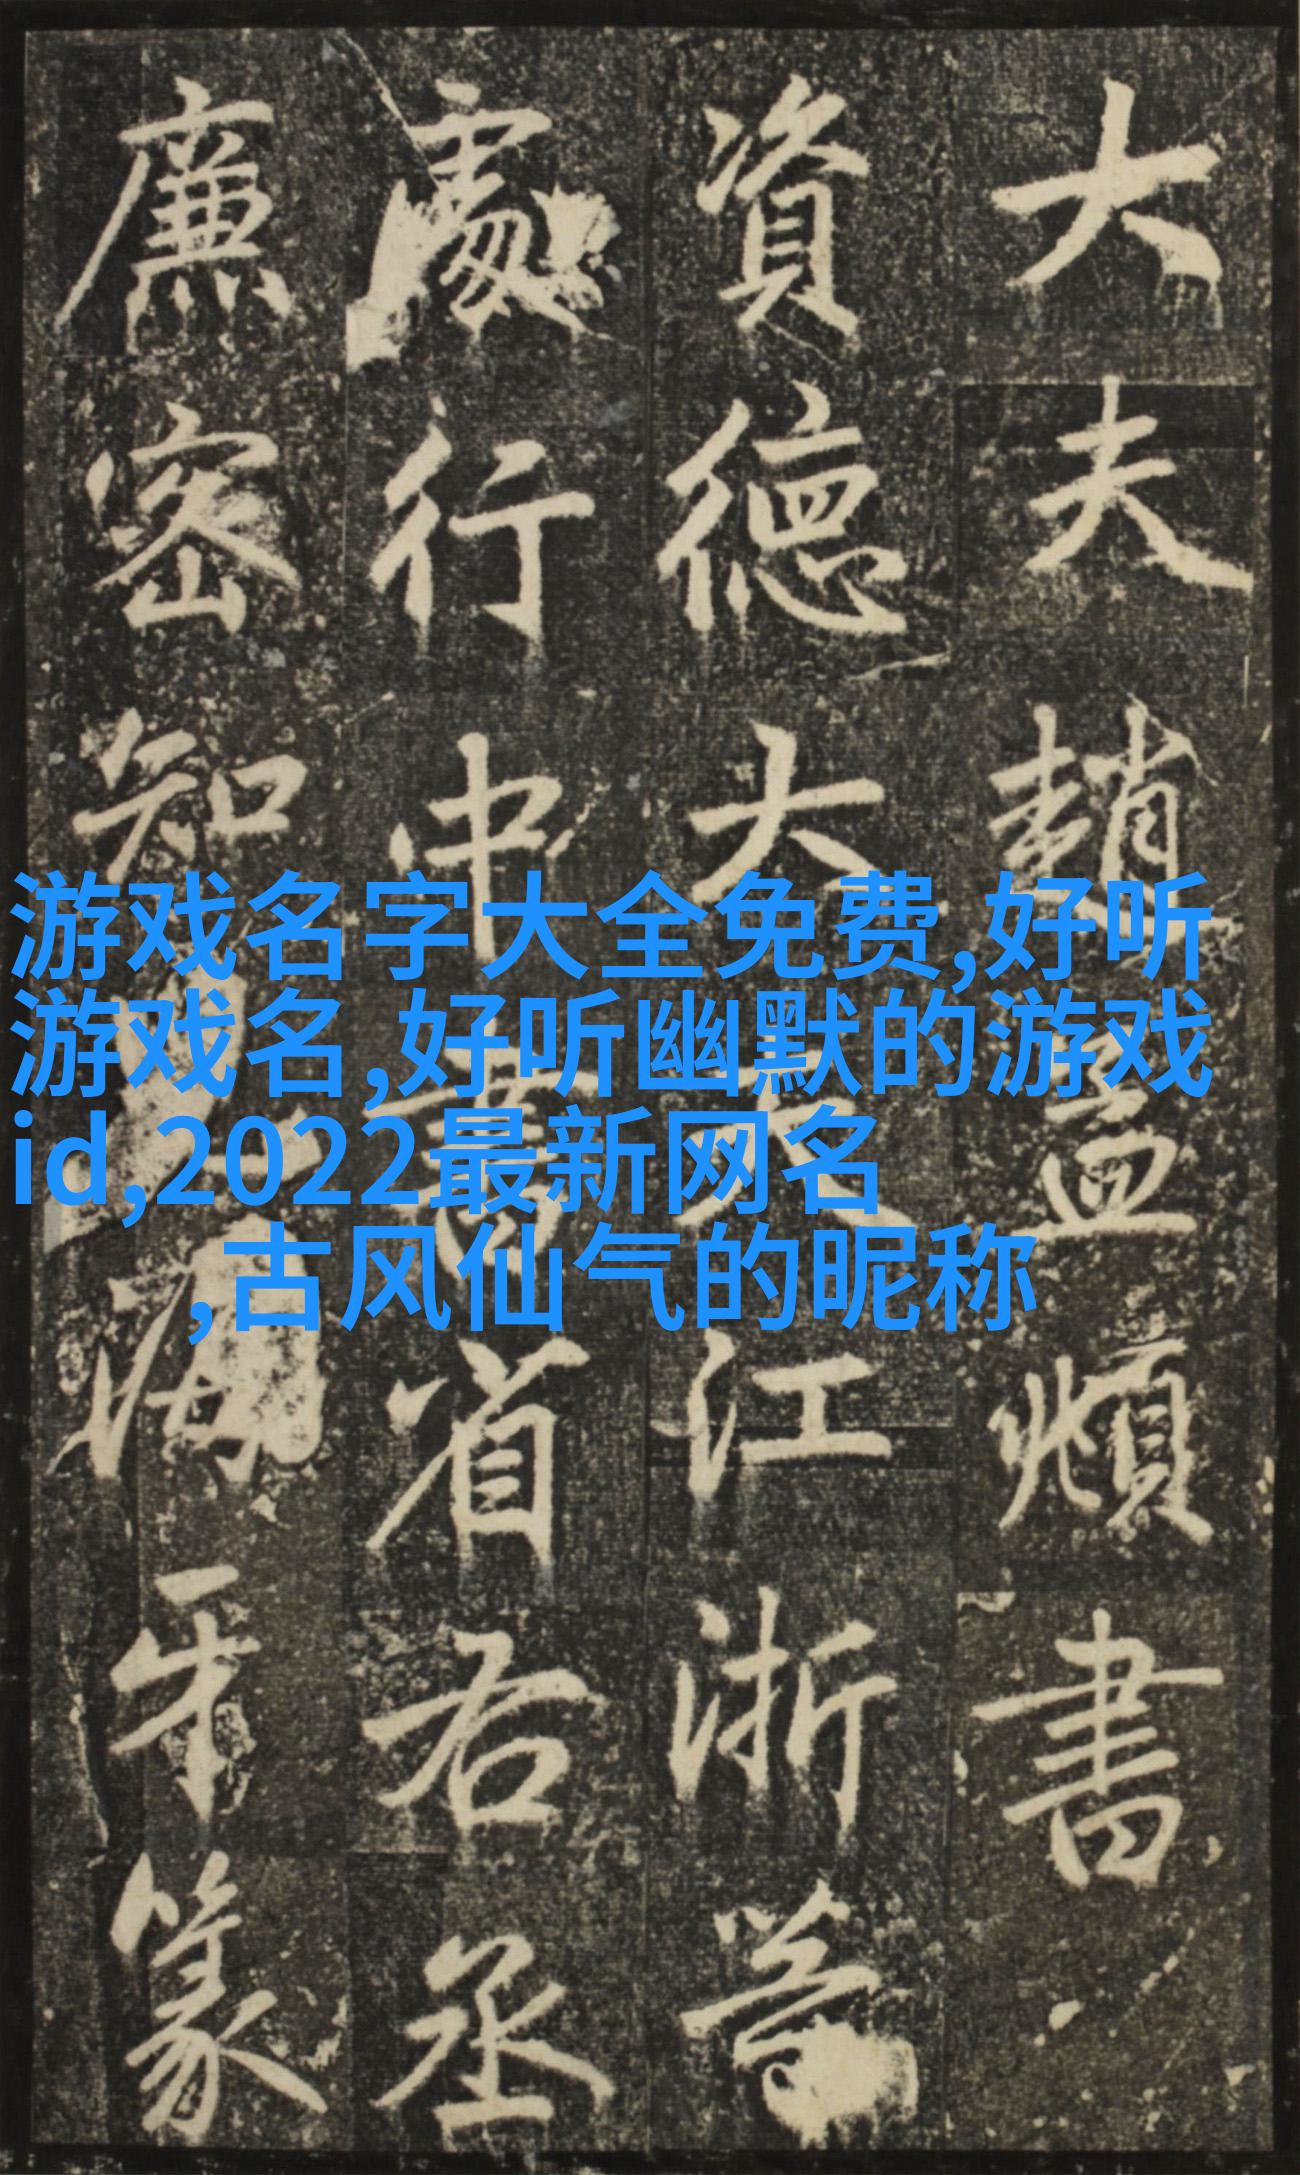 大夫趙孟頫書
資德大夫江浙等
處行中書省右丞
廉密知海牙篆
游戏名字大全免费,好听
游戏名,好听幽默的游戏
id,2022最新网名
,古风仙气的昵称